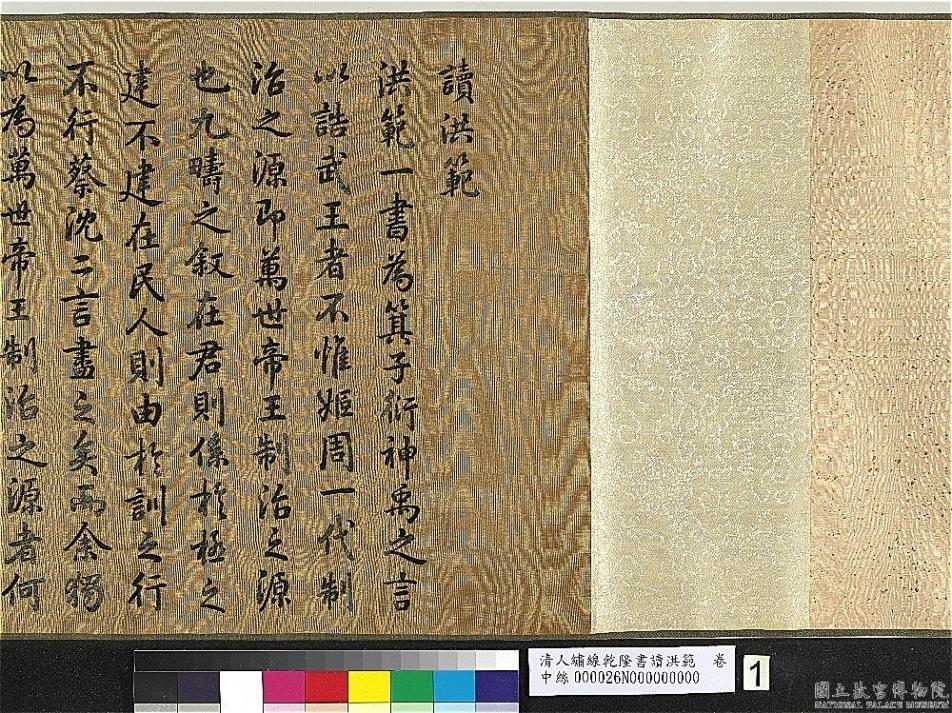 讀洪範
洪範一書為箕子衍神禹之言
以誥武王者不惟姬周一代制
治之源即萬世帝王制治之源
也九疇之敘在君則係於極之
建不建在民人則由於訓之行
不行蔡沈二言盡之矣而余獨
以為萬世帝王制治之源者何
清人繡線乾隆書讀洪範 卷
中絲000026N000000000
1
國立故宮博物院
NATIONAL PALACE MUSEUM